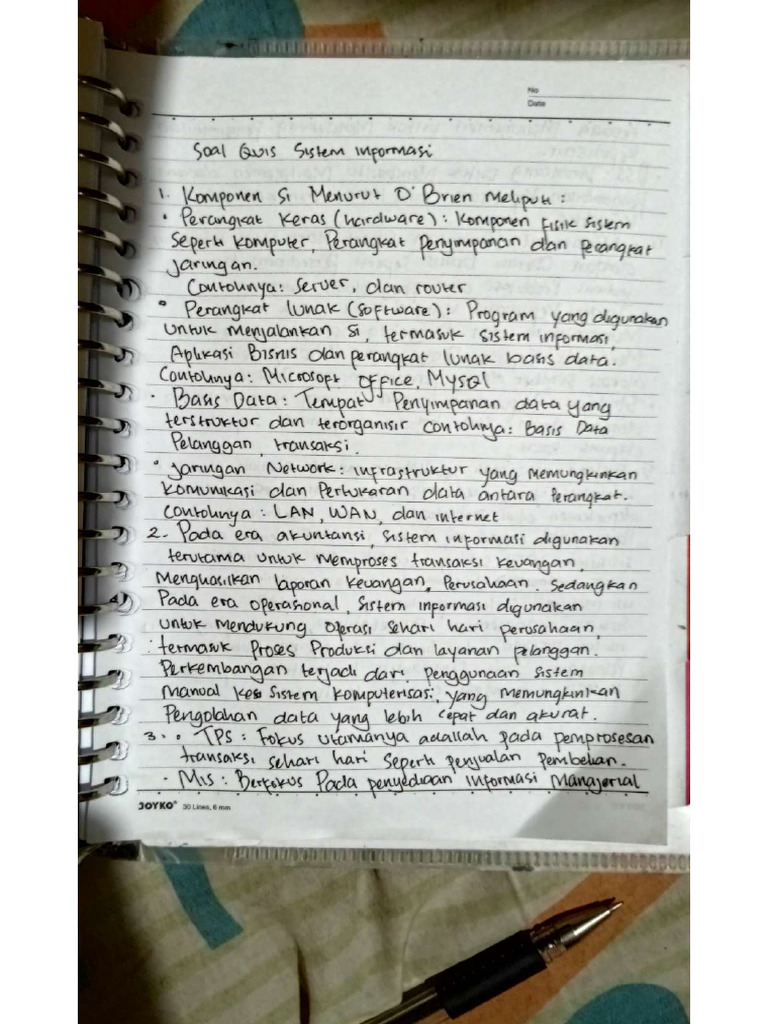 No
Date
Soal Quis Sistem informasi
1. Komponen SI Menurut O'Brien meliputi :
• Perangkat Keras (hardware) : Komponen fisik sistem
seperti komputer, Perangkat penyimpanan dan perangkat
jaringan.
Contohnya: server, dan router
• Perangkat lunak (software) : Program yang digunakan
untuk menjalankan SI, termasuk sistem informasi,
Aplikasi Bisnis dan perangkat lunak basis data.
Contohnya: Microsoft office, MySql
• Basis Data : Tempat Penyimpanan data yang
terstruktur dan terorganisir contohnya: Basis Data
Pelanggan, transaksi.
• jaringan Network : infrastruktur yang memungkinkan
komunikasi dan Pertukaran data antara perangkat.
Contohnya : LAN, WAN, dan internet
2. Pada era akuntansi, sistem informasi digunakan
terutama untuk memproses transaksi keuangan,
Menghasilkan laporan keuangan, Perusahaan. Sedangkan
Pada era operasional, sistem informasi digunakan
untuk mendukung operasi sehari hari perusahaan,
termasuk Proses Produksi dan layanan pelanggan.
Perkembangan terjadi dari penggunaan sistem
manual ke sistem komputerisasi, yang memungkinkan
Pengolahan data yang lebih cepat dan akurat.
3. • TPS : Fokus utamanya adallah pada pemprosesan
transaksi sehari hari seperti penjualan Pembelian.
• MIS : Berfokus Pada penyediaan informasi Manajerial
JOYKO® 30 Lines, 6 mm